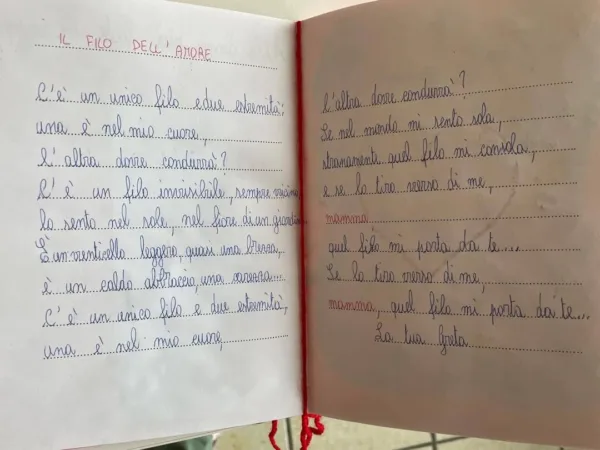 IL FILO DELL'AMORE
C'è un unico filo e due estremità;
una è nel mio cuore,
l'altra dove condurrà?
C'è un filo invisibile, sempre vicino
lo sento nel sole, nel fiore di un giardino
È un venticello leggero, quasi una brezza,
è un caldo abbraccio, una carezza....
C'è un unico filo e due estremità,
una è nel mio cuore,
l'altra dove condurrà?
Se nel mondo mi sento sola,
stranamente quel filo mi consola,
e se lo tiro verso di me,
mamma
quel filo mi porta da te...
Se lo tiro verso di me,
mamma, quel filo mi porta da te...
La tua Greta